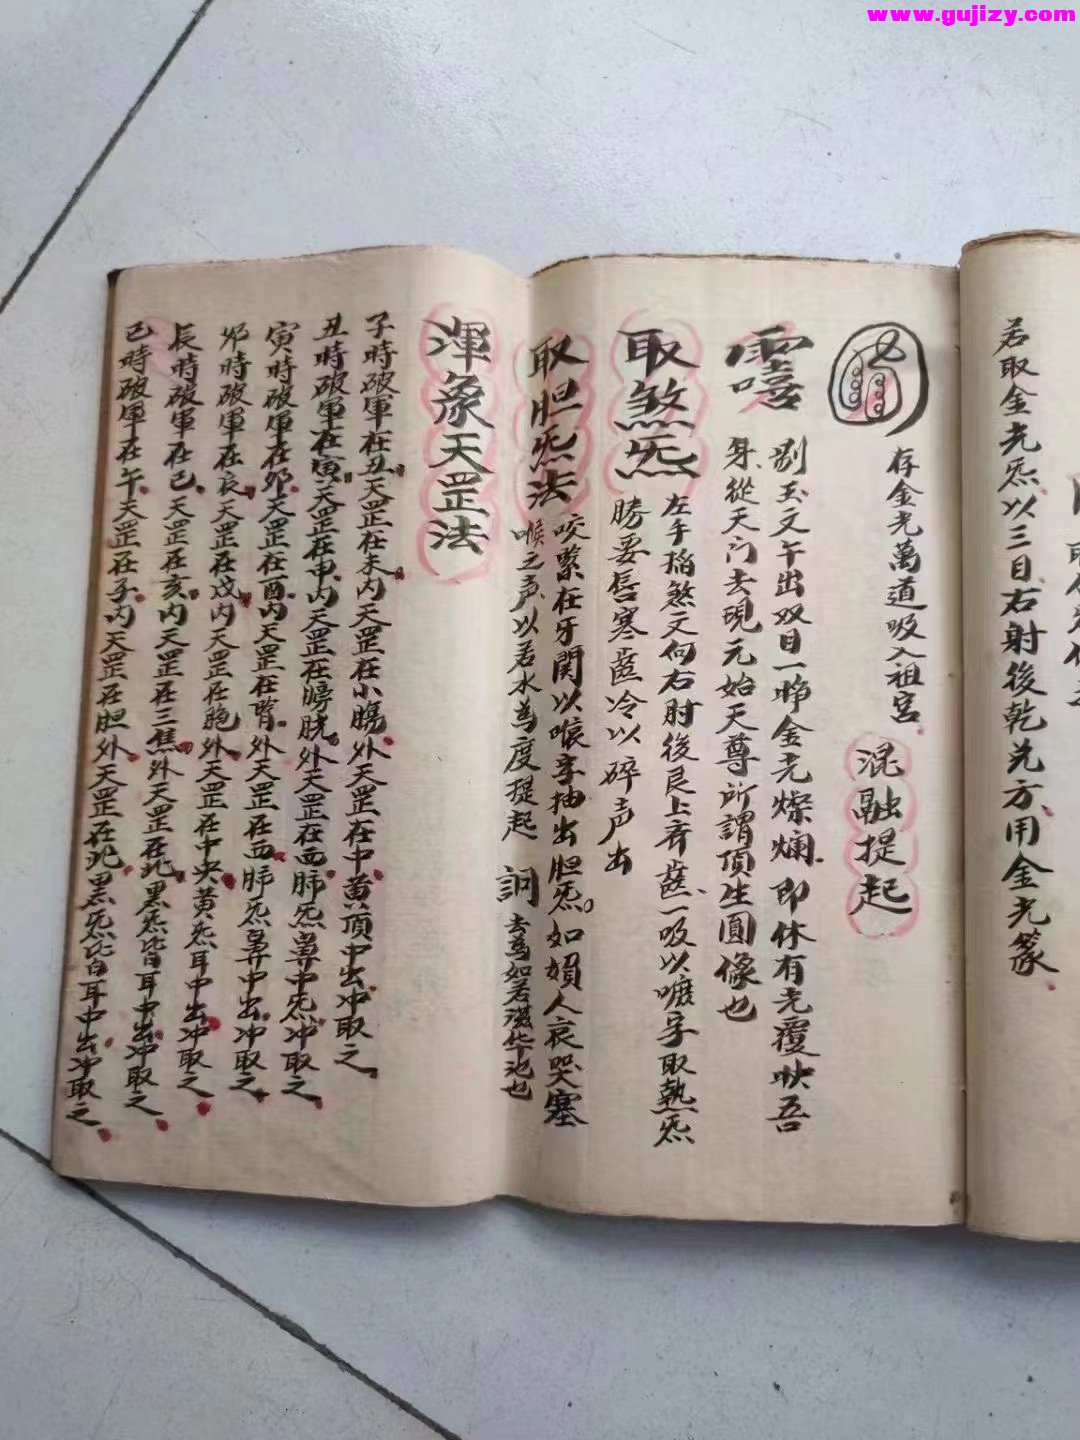 www.gujizy.com
若取金光炁以三日右射後乾兌方用金光篆
存金光萬道吸入祖宮
混融提起
剔玉文午出双目一睁金光燦爛即休有光覆映吾
身從天门去現元始天尊所謂頂生圓像也
取煞炁
左手掐煞文向右肘後艮上齐齒一吸以嚒字取熱炁
勝要唇寒齒冷以碎声出
取胆炁法
咬緊在牙関以喉字抽出胆炁如損人哀哭塞
喉之声以若水為度提起
去為如若滋华池也
渾象天罡法
子時破軍在丑天罡在未内天罡在小腸外天罡在中黄頂中出冲取之
丑時破軍在寅天罡在申内天罡在膀胱外天罡在西肺炁鼻中炁冲取之
寅時破軍在卯天罡在酉内天罡在腎外天罡在西肺炁鼻中出冲取之
卯時破軍在辰天罡在戍内天罡在胞外天罡在中央黄炁耳中出冲取之
辰時破軍在巳天罡在亥内天罡在三焦外天罡在北黑炁皆耳中出冲取之
巳時破軍在午天罡在子内天罡在胆外天罡在北黑炁皆耳中出冲取之